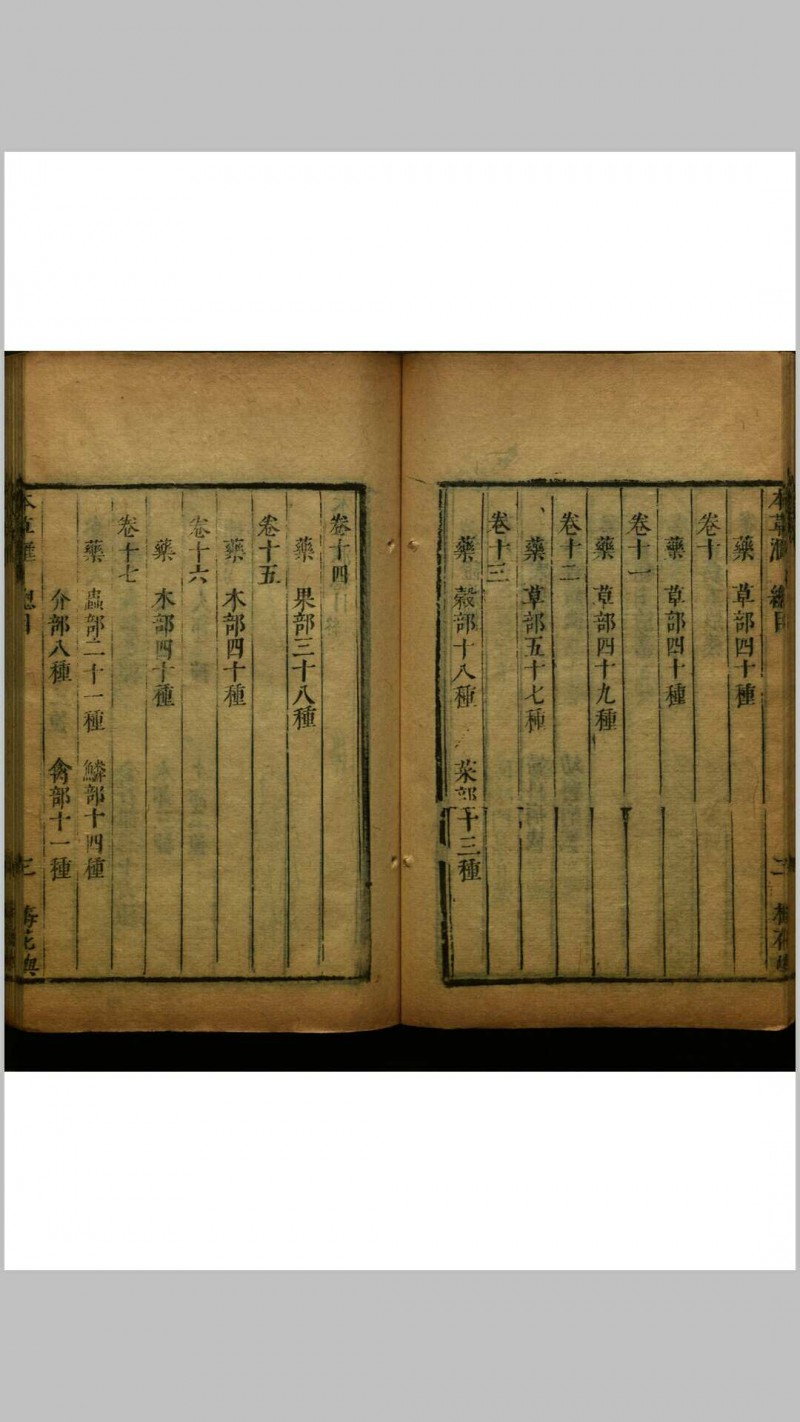 本草 總目 二
藥 草部四十種
卷十
藥 草部四十種
卷十一
藥 草部四十九種
卷十二
藥 草部五十七種
卷十三
藥 穀部十八種 菜部十三種
卷十四
藥 果部三十八種
卷十五
藥 木部四十種
卷十六
藥 木部四十種
卷十七
藥 蟲部二十一種 鱗部十四種
介部八種 禽部十一種
本草 總目 三 梅花